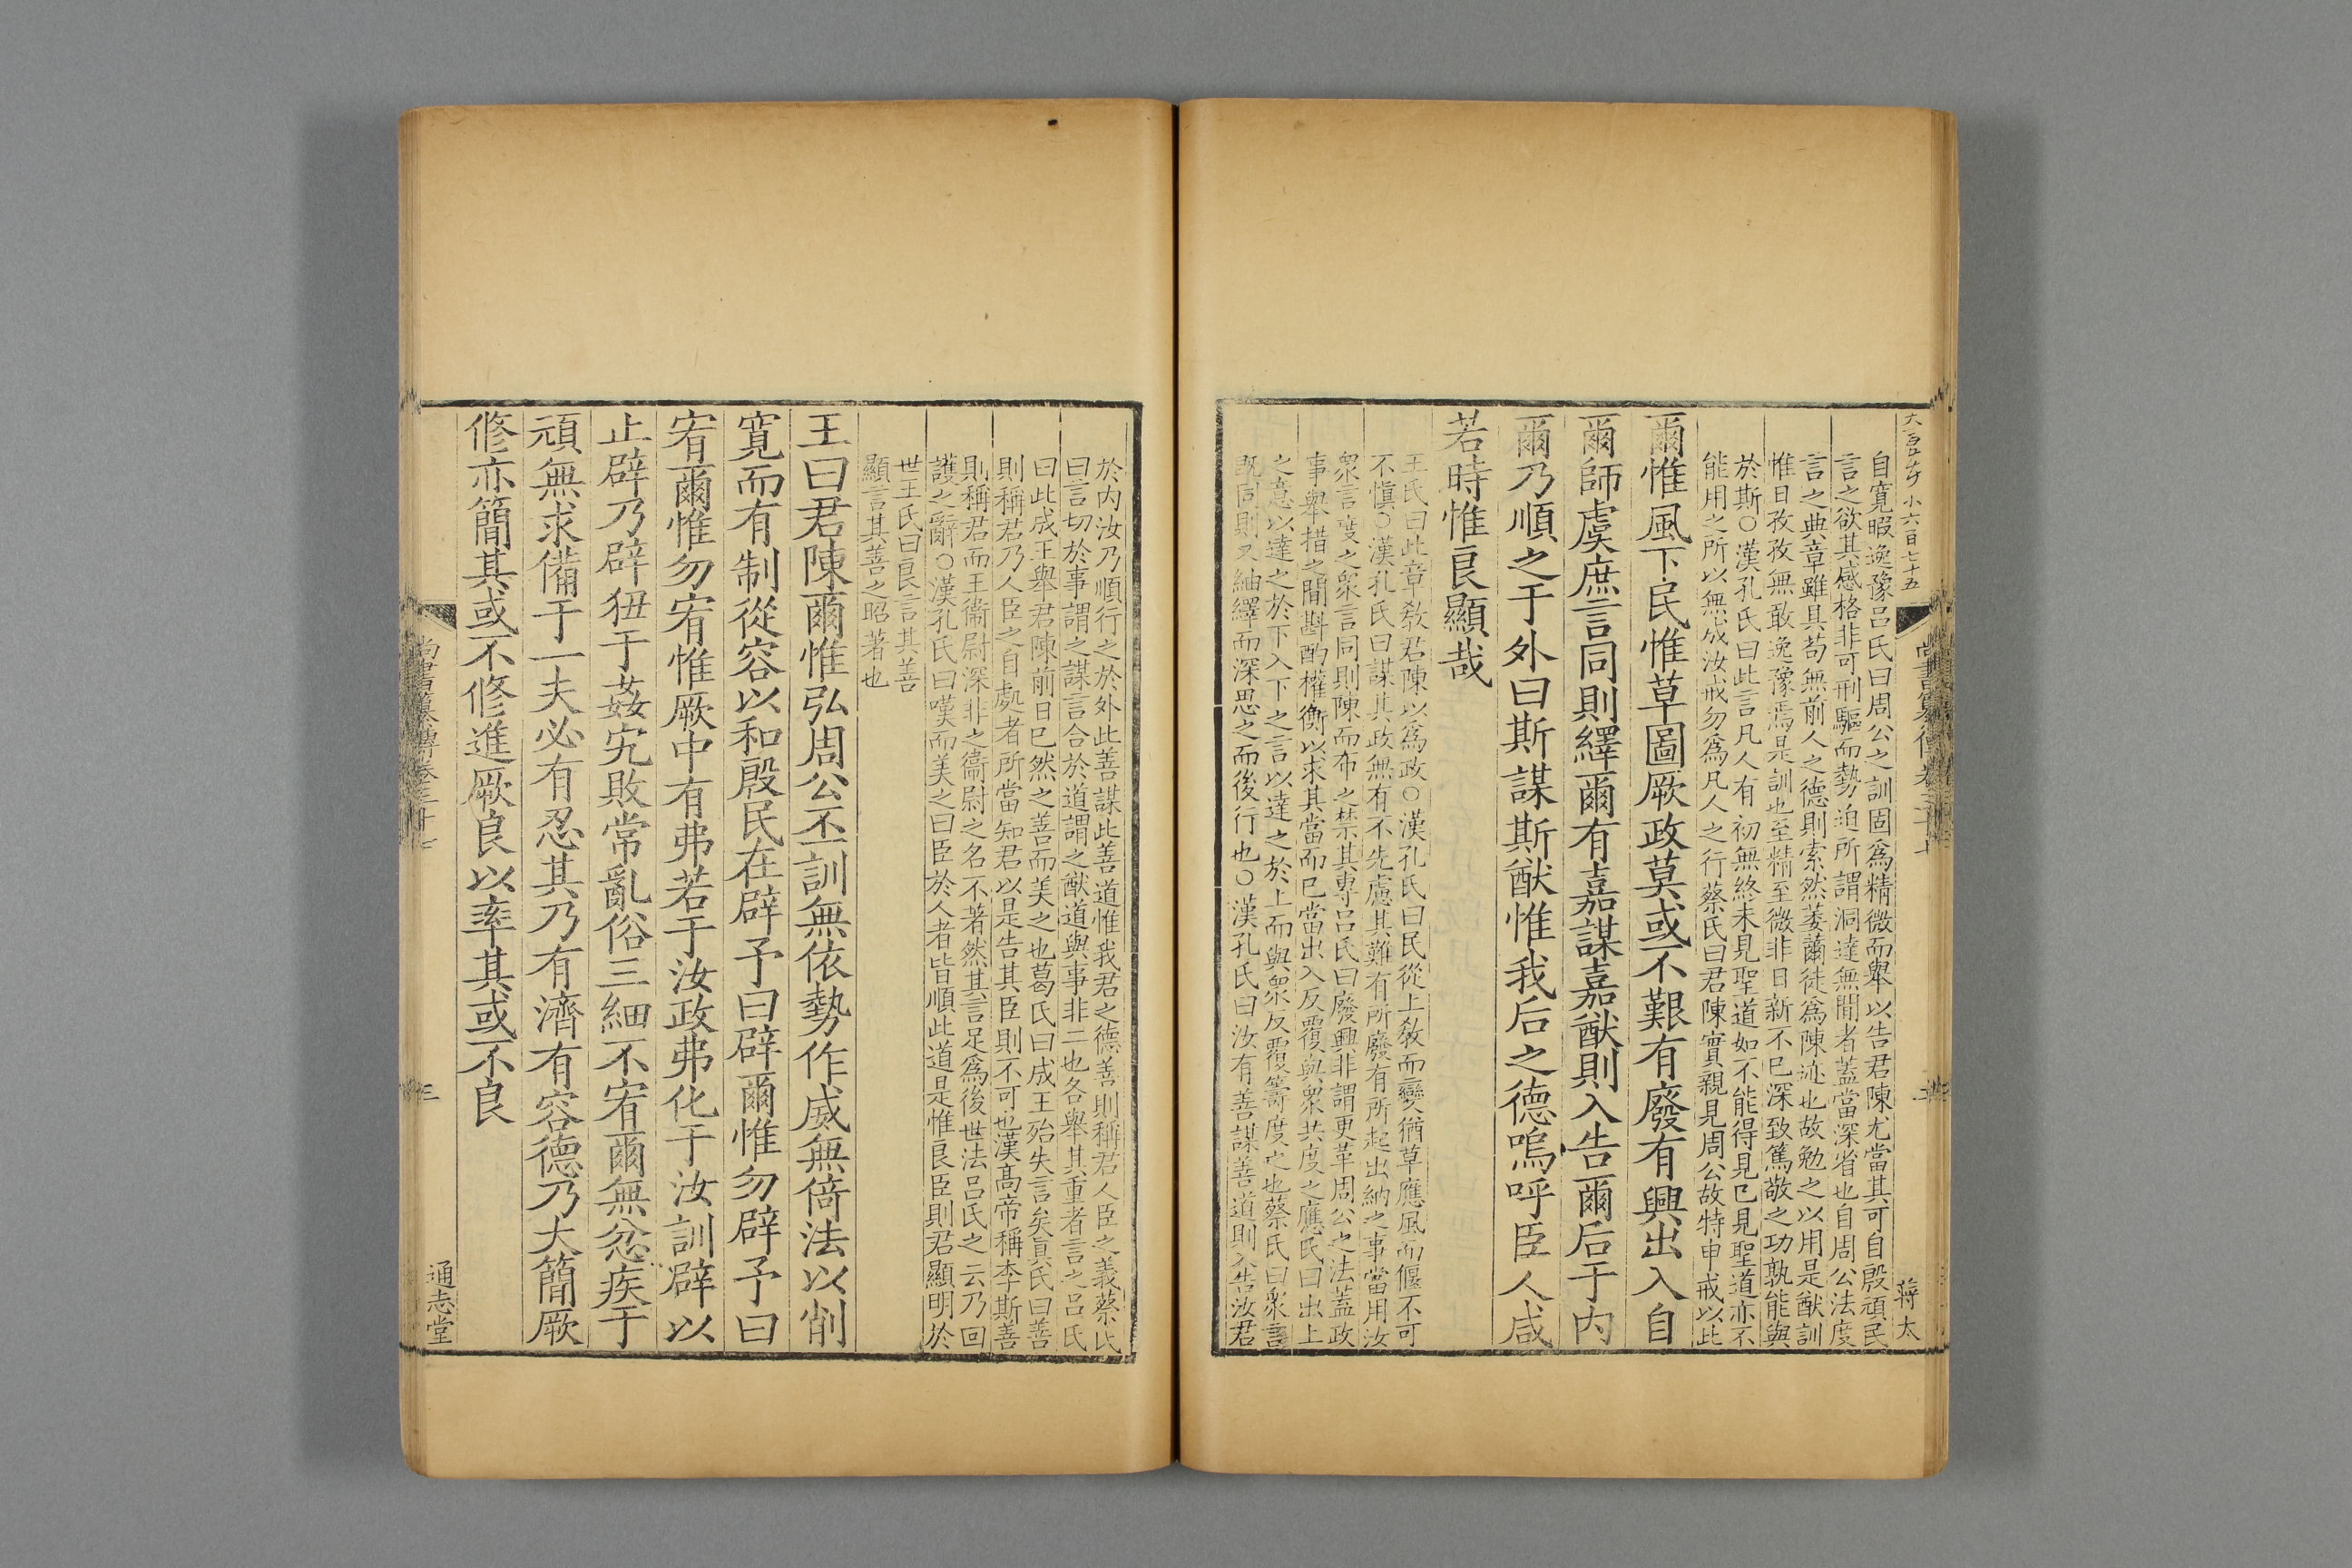 小六百七十五
蔣太
自寬暇逸豫呂氏曰周公之訓固爲精微而舉以告君陳尤當其可自殷頑民
言之欲其感格非可刑驅而勢迫所謂洞達無間者蓋當深省也自周公法度
言之典章雖具苟無前人之德則索然萎薾徒爲陳迹也故勉之以用是猷訓
惟日孜孜無敢逸豫焉是訓也至精至微非日新不已深致篤敬之功孰能與
於斯○漢孔氏曰此言凡人有初無終未見聖道如不能得見已見聖道亦不
能用之所以無成汝戒勿爲凡人之行蔡氏曰君陳實親見周公故特申戒以此
爾惟風下民惟草圖厥政莫或不艱有廢有興出入自
爾師虞庶言同則繹爾有嘉謀嘉猷則入告爾后于内
爾乃順之于外曰斯謀斯猷惟我后之德嗚呼臣人咸
若時惟良顯哉
王氏曰此章敎君陳以爲政○漢孔氏曰民從上敎而變猶草應風而偃不可
不愼○漢孔氏曰謀其政無有不先慮其難有所廢有所起出納之事當用汝
衆言度之衆言同則陳而布之禁其專呂氏曰廢興非謂更革周公之法蓋政
事舉措之間斟酌權衡以求其當而已當出入反覆與衆共度之應氏曰出上
之意以達之於下入下之言以達之於上而與衆反覆籌度之也蔡氏曰衆言
旣同則又紬繹而深思之而後行也○漢孔氏曰汝有善謀善道則入告汝君
於内汝乃順行之於外此善謀此善道惟我君之德善則稱君人臣之義蔡氏
曰言切於事謂之謀言合於道謂之猷道與事非二也各舉其重者言之呂氏
曰此成王舉君陳前日已然之善而美之也葛氏曰成王殆失言矣眞氏曰善
則稱君乃人臣之自處者所當知君以是告其臣則不可也漢高帝稱李斯善
則稱君而王衞尉深非之衞尉之名不著然其言足爲後世法呂氏之云乃回
護之辭○漢孔氏曰嘆而美之曰臣於人者皆順此道是惟良臣則君顯明於
世王氏曰良言其善
顯言其善之昭著也
王曰君陳爾惟弘周公丕訓無依勢作威無倚法以削
寬而有制從容以和殷民在辟予曰辟爾惟勿辟予曰
宥爾惟勿宥惟厥中有弗若于汝政弗化于汝訓辟以
止辟乃辟狃于姦宄敗常亂俗三細不宥爾無忿疾于
頑無求備于一夫必有忍其乃有濟有容德乃大簡厥
修亦簡其或不修進厥良以率其或不良
尚書纂傳卷三十七
三
通志堂